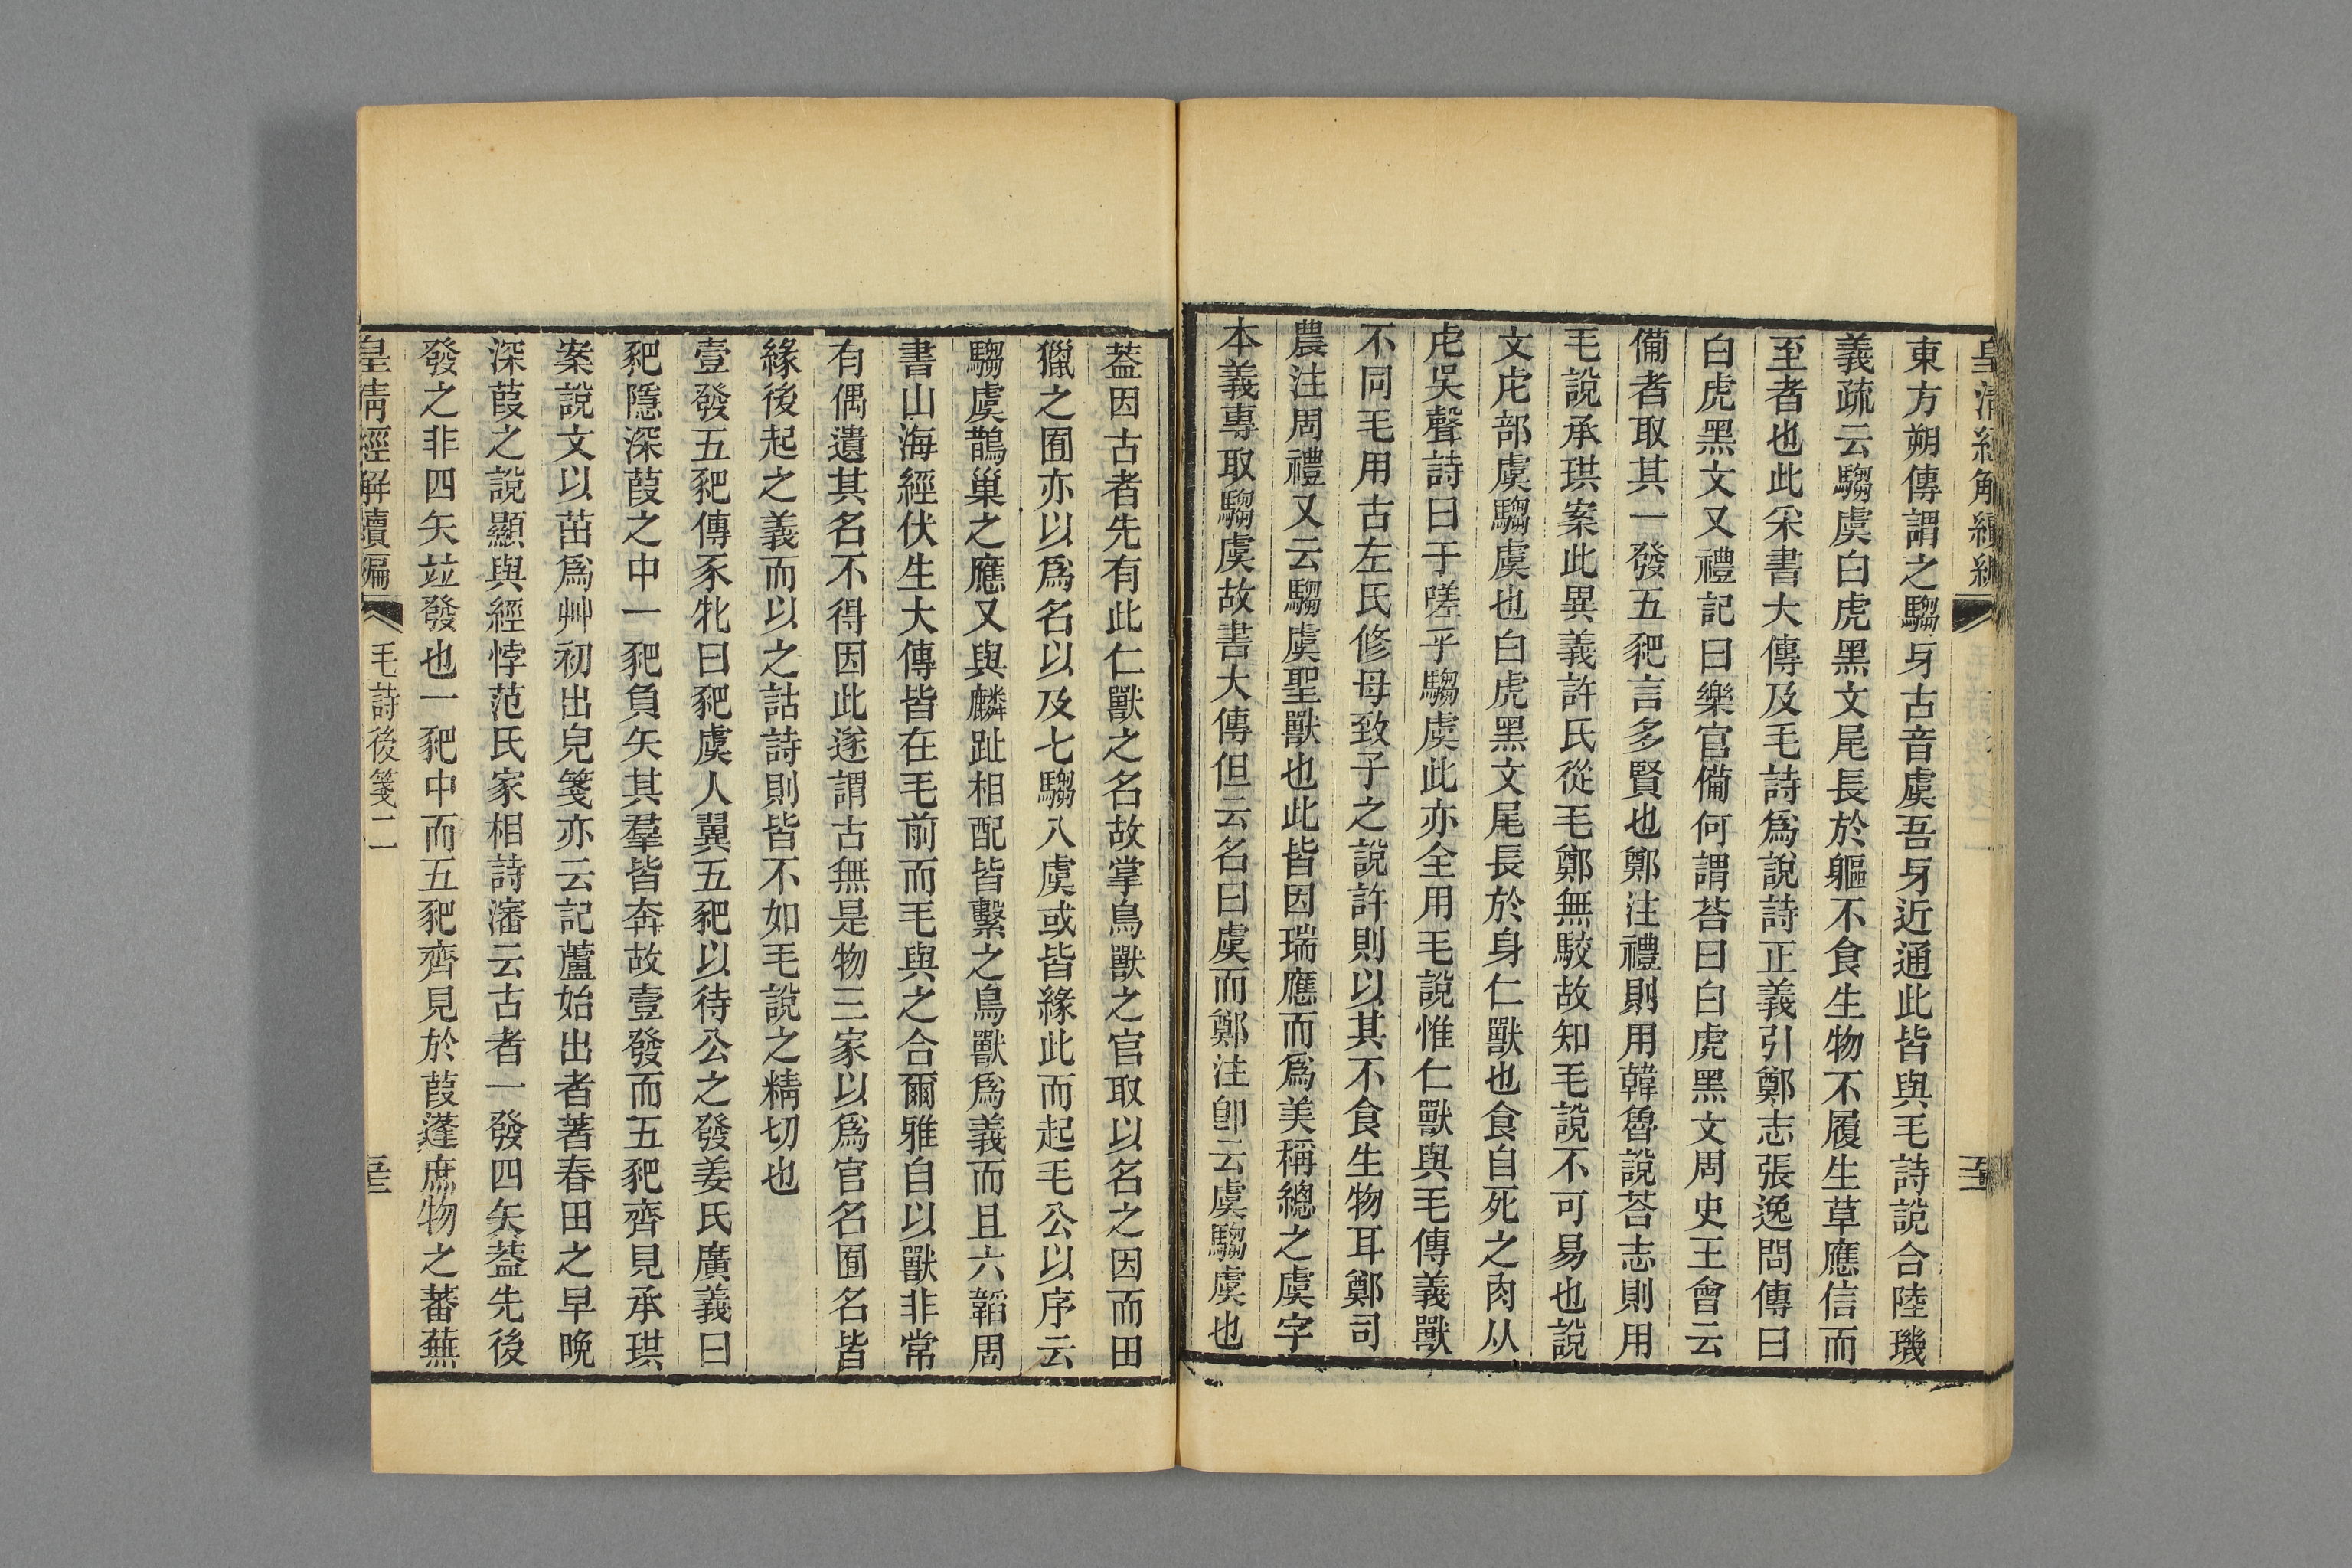 皇清經解續編
東方朔傳謂之騶牙古音虞吾牙近通此皆與毛詩說合陸璣
義疏云騶虞白虎黑文尾長於軀不食生物不履生草應信而
至者也此尒書大傳及毛詩爲說詩正義引鄭志張逸問傳曰
白虎黑文又禮記曰樂官備何謂荅曰白虎黑文周史王會云
備者取其一發五豝言多賢也鄭注禮則用韓魯說荅志則用
毛說承珙案此異義許氏從毛鄭無駮故知毛說不可易也說
文虍部虞騶虞也白虎黑文尾長於身仁獸也食自死之肉从
虍吳聲詩曰于嗟乎騶虞此亦全用毛說惟仁獸與毛傳義獸
不同毛用古左氏修母致子之說許則以其不食生物耳鄭司
農注周禮又云騶虞聖獸也此皆因瑞應而爲美稱總之虞字
本義專取騶虞故書大傳但云名曰虞而鄭注卽云虞騶虞也
蓋因古者先有此仁獸之名故掌鳥獸之官取以名之因而田
獵之囿亦以爲名以及七騶八虞或皆緣此而起毛公以序云
騶虞鵲巢之應又與麟趾相配皆繫之鳥獸爲義而且六韜周
書山海經伏生大傳皆在毛前而毛與之合爾雅自以獸非常
有偶遺其名不得因此遂謂古無是物三家以爲官名囿名皆
緣後起之義而以之詁詩則皆不如毛說之精切也
壹發五豝傳豕牝曰豝虞人翼五豝以待公之發姜氏廣義曰
豝隱深葭之中一豝負矢其羣皆奔故壹發而五豝齊見承珙
案說文以茁爲艸初出皃箋亦云記蘆始出者著春田之早晚
深葭之說顯與經悖范氏家相詩瀋云古者一發四矢葢先後
發之非四矢竝發也一豝中而五豝齊見於葭蓬庶物之蕃蕪
皇清經解續編
毛詩後箋二